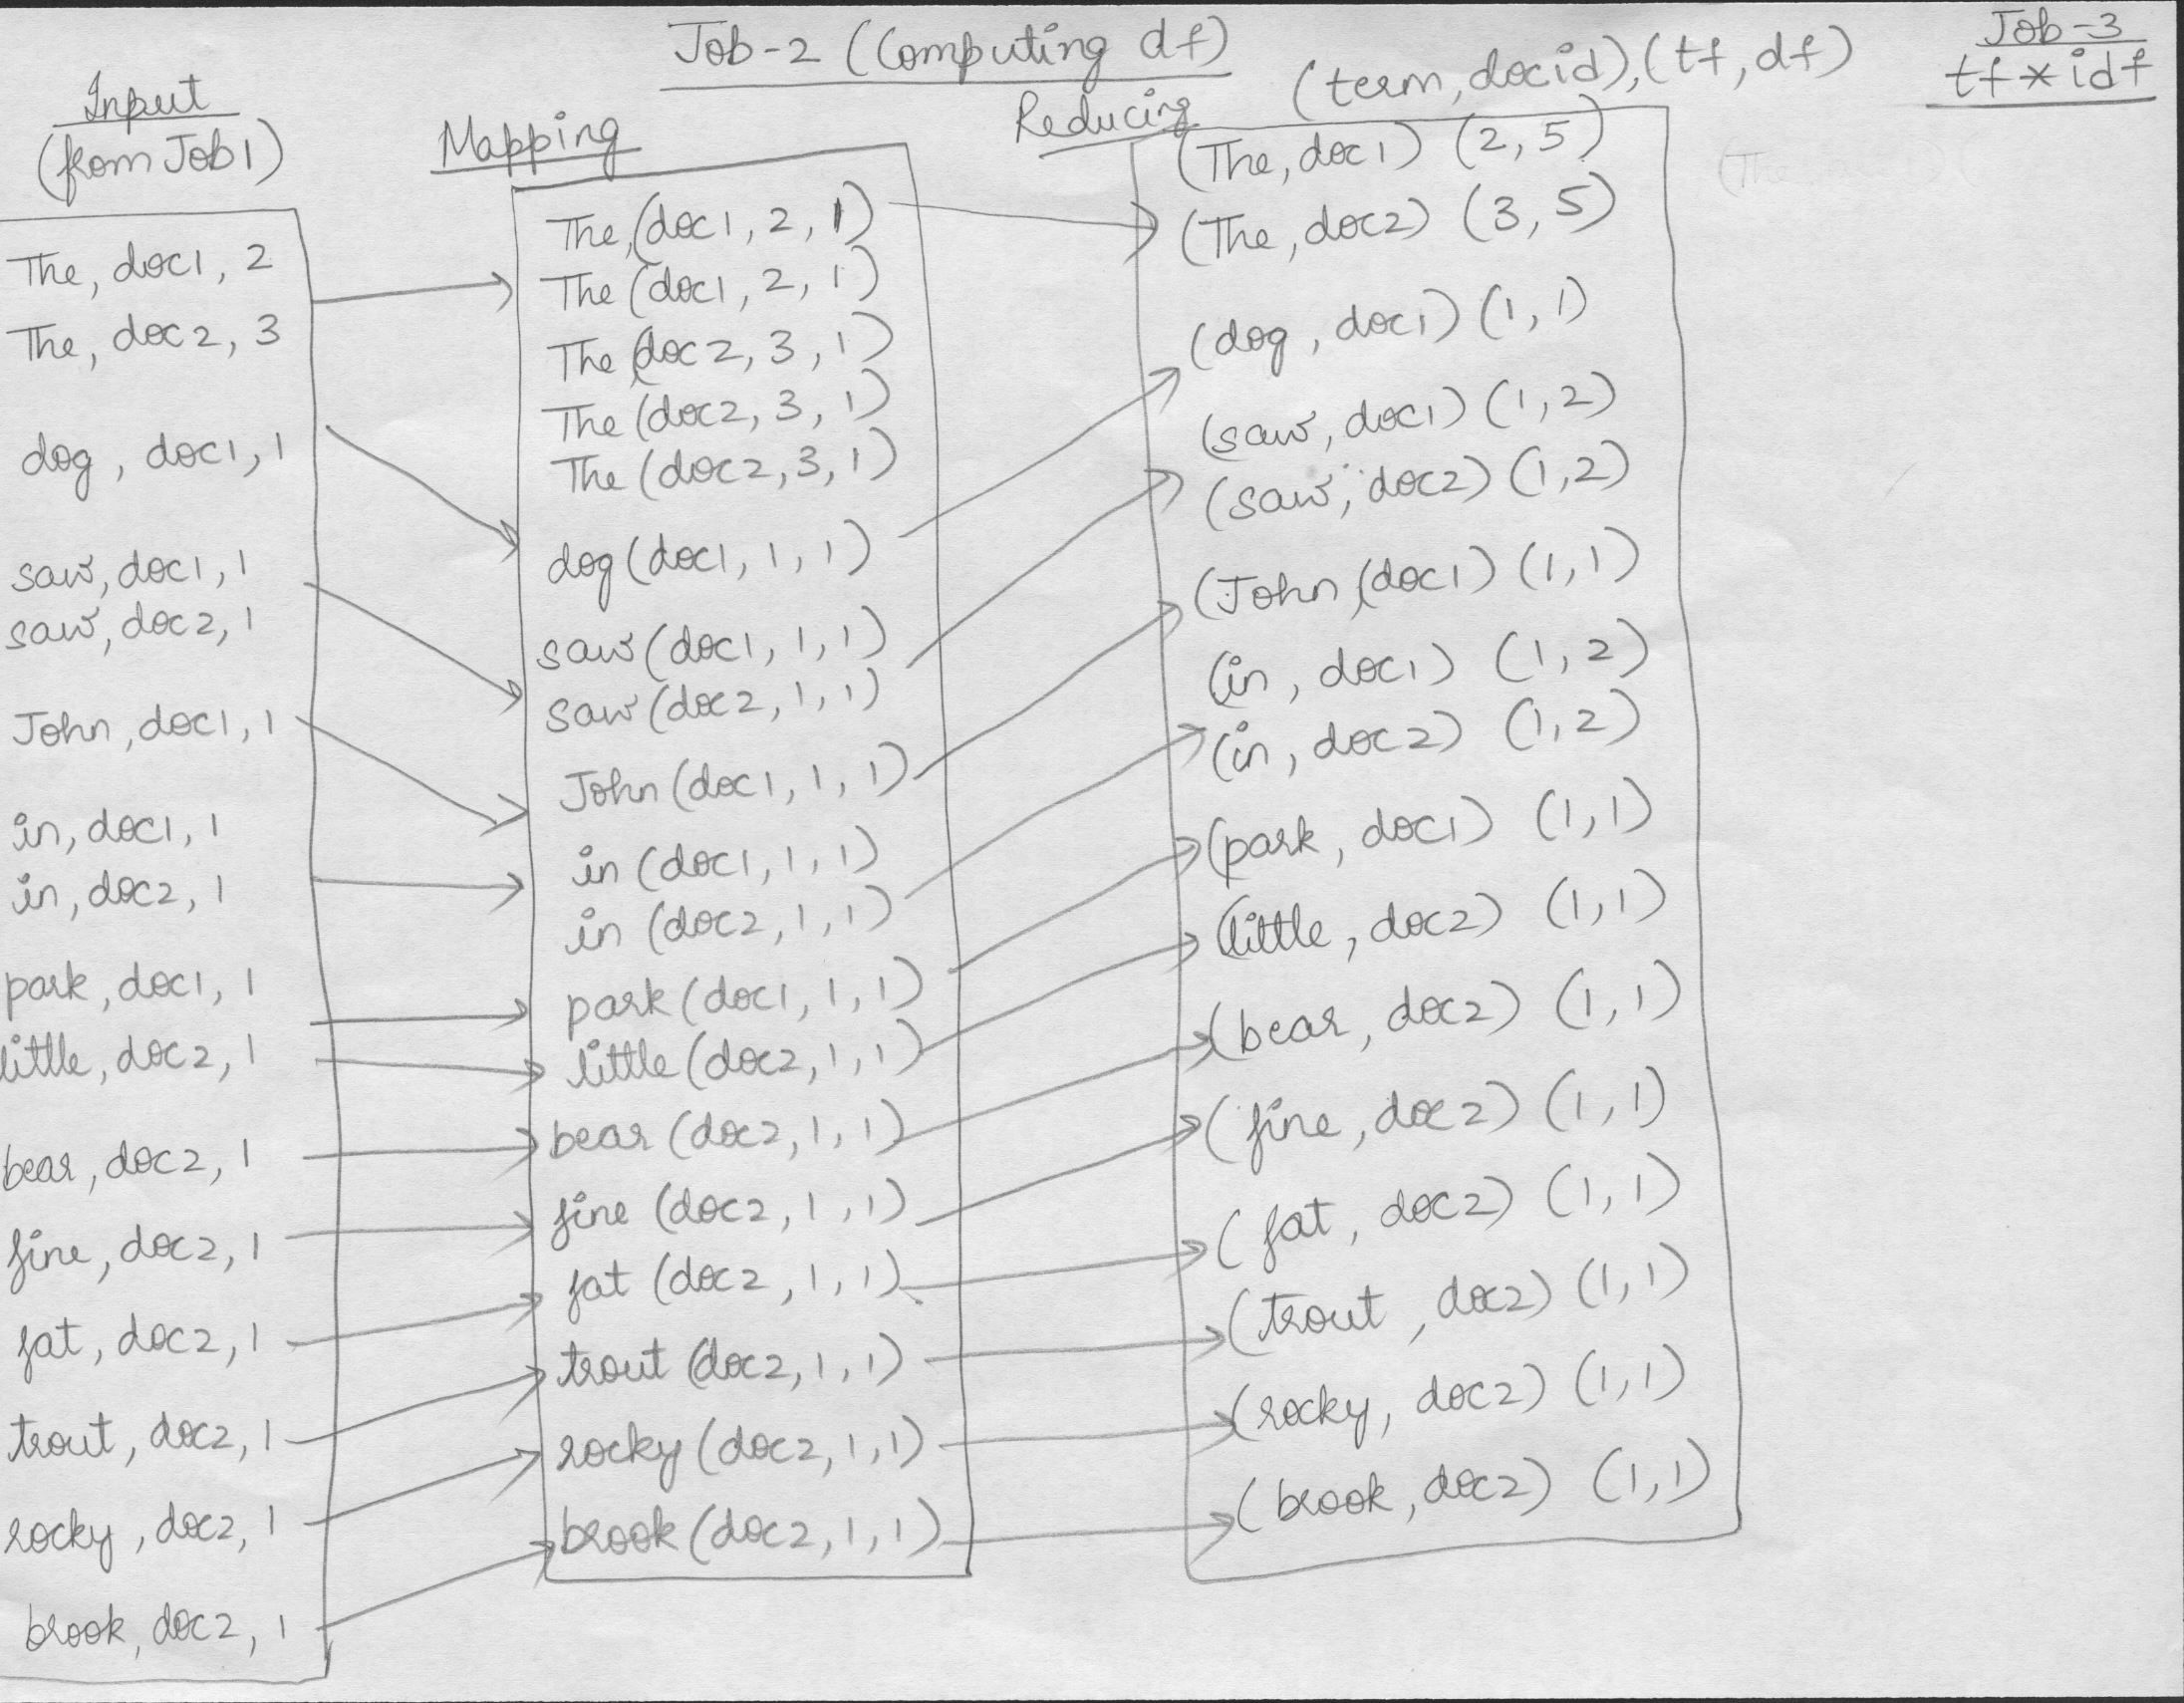 Job-2 (Computing df)
Job-3
tf * idf
Input
(from Job1)
The, doc1, 2
The, doc2, 3
dog, doc1, 1
saw, doc1, 1
saw, doc2, 1
John, doc1, 1
in, doc1, 1
in, doc2, 1
park, doc1, 1
little, doc2, 1
bear, doc2, 1
fine, doc2, 1
fat, doc2, 1
trout, doc2, 1
rocky, doc2, 1
brook, doc2, 1
Mapping
The, (doc1, 2, 1)
The (doc1, 2, 1)
The (doc2, 3, 1)
The (doc2, 3, 1)
The (doc2, 3, 1)
dog (doc1, 1, 1)
saw (doc1, 1, 1)
saw (doc2, 1, 1)
John (doc1, 1, 1)
in (doc1, 1, 1)
in (doc2, 1, 1)
park (doc1, 1, 1)
little (doc2, 1, 1)
bear (doc2, 1, 1)
fine (doc2, 1, 1)
fat (doc2, 1, 1)
trout (doc2, 1, 1)
rocky (doc2, 1, 1)
brook (doc2, 1, 1)
Reducing
(term, docid), (tf, df)
(The, doc1) (2, 5)
(The, doc2) (3, 5)
(dog, doc1) (1, 1)
(saw, doc1) (1, 2)
(saw, doc2) (1, 2)
(John, (doc1) (1, 1)
(in, doc1) (1, 2)
(in, doc2) (1, 2)
(park, doc1) (1, 1)
(little, doc2) (1, 1)
(bear, doc2) (1, 1)
(fine, doc2) (1, 1)
(fat, doc2) (1, 1)
(trout, doc2) (1, 1)
(rocky, doc2) (1, 1)
(brook, doc2) (1, 1)